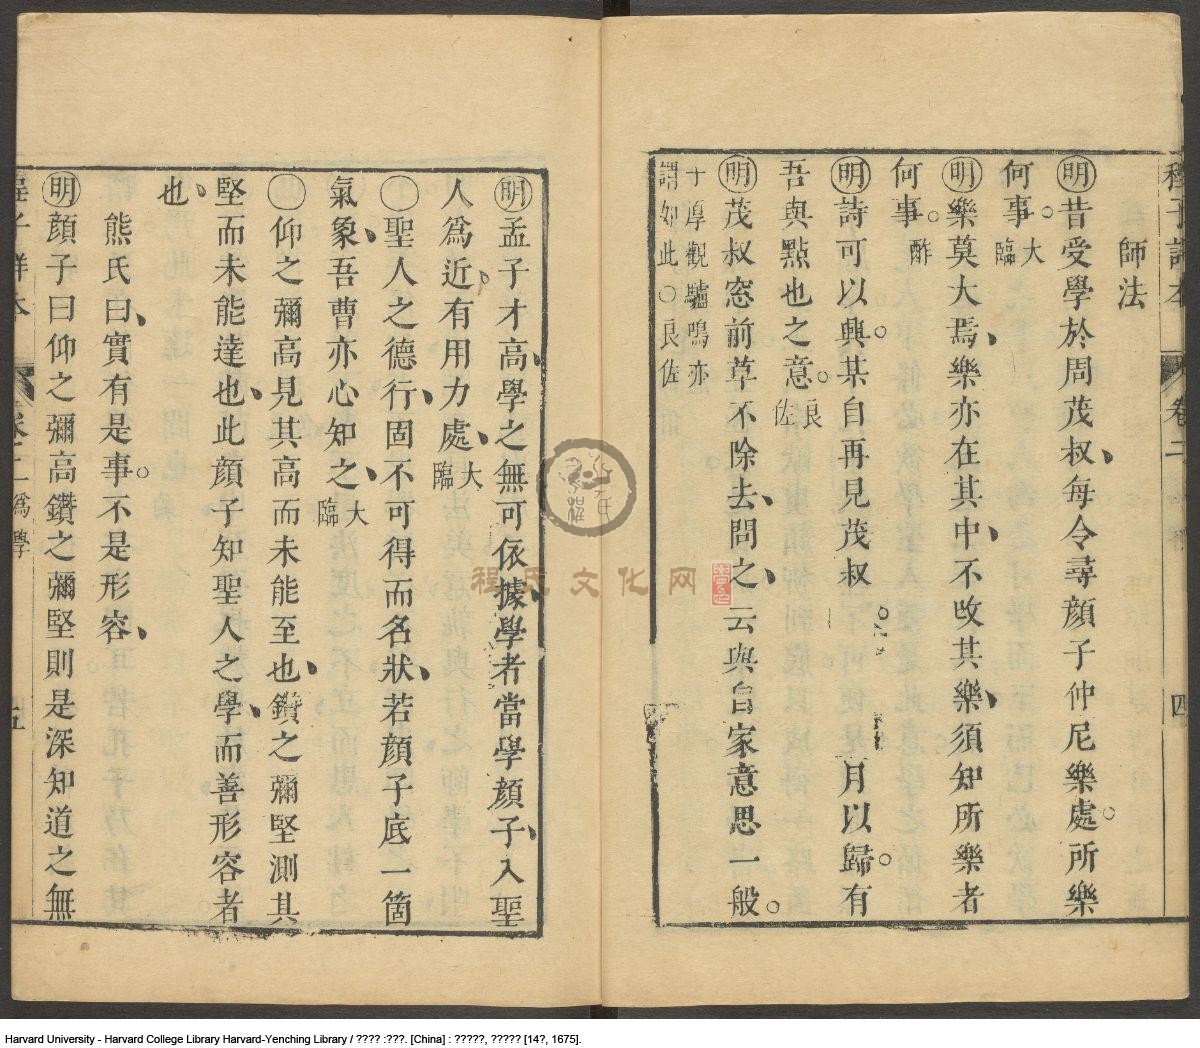 師法
明昔受學於周茂叔每令尋顔子仲尼樂處所樂
何事大臨
明樂莫大焉樂亦在其中不改其樂須知所樂者
何事酢
明詩可以興某自再見茂叔月以歸有
吾與點也之意良佐
明茂叔窓前草不除去問之云與自家意思一般
子厚觀驢鳴亦
謂如此○良佐
卷二
四
明孟子才高學之無可依據學者當學顔子入聖
人爲近有用力處大臨
○聖人之德行固不可得而名狀若顔子底一箇
氣象吾曹亦心知之大臨
仰之彌高見其高而未能至也鑽之彌堅測其
堅而未能達也此顔子知聖人之學而善形容者
也
熊氏曰實有是事不是形容
明顔子曰仰之彌高鑽之彌堅則是深知道之無
卷二爲學
五
程氏文化网
Harvard University - Harvard College Library Harvard-Yenching Library / ???? :???. [China] : ?????, ????? [14?, 1675].